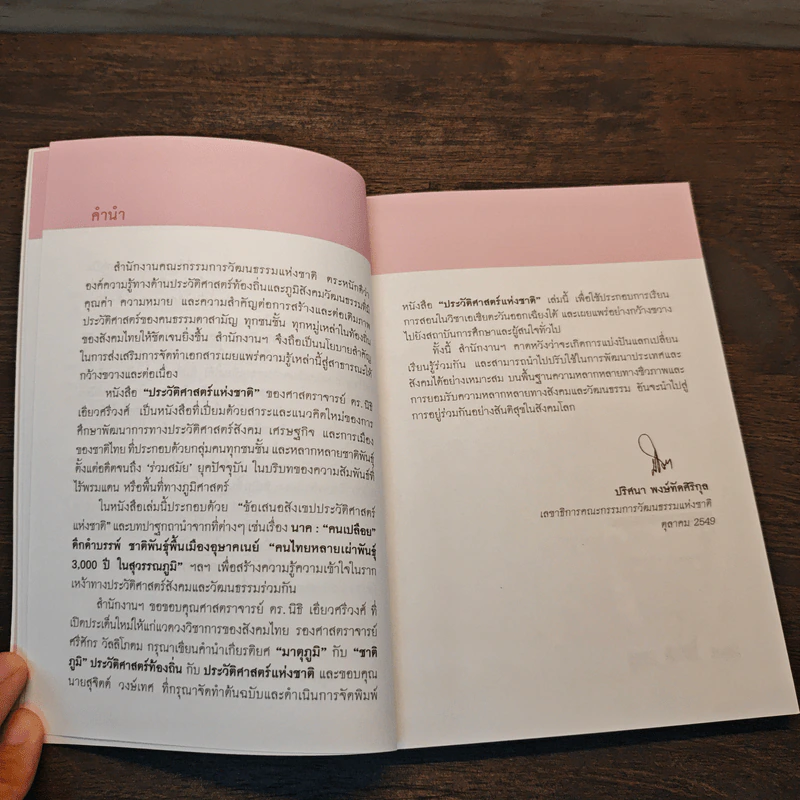 คำนำ
สำนักงานคณะกรรมการวัฒนธรรมแห่งชาติ ตระหนักดีว่า
องค์ความรู้ทางด้านประวัติศาสตร์ท้องถิ่นและภูมิสังคมวัฒนธรรมที่มี
คุณค่า ความหมาย และความสำคัญต่อการสร้างและต่อเติมภาพ
ประวัติศาสตร์ของคนธรรมดาสามัญ ทุกชนชั้น ทุกหมู่เหล่าในท้องถิ่น
ของสังคมไทยให้ชัดเจนยิ่งขึ้น สำนักงานฯ จึงถือเป็นนโยบายสำคัญ
ในการส่งเสริมการจัดทำเอกสารเผยแพร่ความรู้เหล่านี้สู่สาธารณะให้
กว้างขวางและต่อเนื่อง
หนังสือ "ประวัติศาสตร์แห่งชาติ" ของศาสตราจารย์ ดร. นิธิ
เอียวศรีวงศ์ เป็นหนังสือที่เปี่ยมด้วยสาระและแนวคิดใหม่ของการ
ศึกษาพัฒนาการทางประวัติศาสตร์สังคม เศรษฐกิจ และการเมือง
ของชาติไทย ที่ประกอบด้วยกลุ่มคนทุกชนชั้น และหลากหลายชาติพันธุ์
ตั้งแต่อดีตจนถึง 'ร่วมสมัย' ยุคปัจจุบัน ในบริบทของความสัมพันธ์ที่
ไร้พรมแดน หรือพื้นที่ทางภูมิศาสตร์
ในหนังสือเล่มนี้ประกอบด้วย "ข้อเสนอสังเขปประวัติศาสตร์
แห่งชาติ" และบทปาฐกถานำจากที่ต่างๆ เช่นเรื่อง นาค : "คนเปลือย"
ดึกดำบรรพ์ ชาติพันธุ์พื้นเมืองอุษาคเนย์ "คนไทยหลายเผ่าพันธุ์
3,000 ปี ในสุวรรณภูมิ" ฯลฯ เพื่อสร้างความรู้ความเข้าใจในราก
เหง้าทางประวัติศาสตร์สังคมและวัฒนธรรมร่วมกัน
สำนักงานฯ ขอขอบคุณศาสตราจารย์ ดร. นิธิ เอียวศรีวงศ์ ที่
เปิดประเด็นใหม่ให้แก่แวดวงวิชาการของสังคมไทย รองศาสตราจารย์
ศรีศักร วัลลิโภดม กรุณาเขียนคำนำเกียรติยศ "มาตุภูมิ" กับ "ชาติ
ภูมิ" ประวัติศาสตร์ท้องถิ่น กับ ประวัติศาสตร์แห่งชาติ และขอบคุณ
นายสุจิตต์ วงษ์เทศ ที่กรุณาจัดทำต้นฉบับและดำเนินการจัดพิมพ์
หนังสือ "ประวัติศาสตร์แห่งชาติ" เล่มนี้ เพื่อใช้ประกอบการเรียน
การสอนในวิชาเอเชียตะวันออกเฉียงใต้ และเผยแพร่อย่างกว้างขวาง
ไปยังสถาบันการศึกษาและผู้สนใจทั่วไป
ทั้งนี้ สำนักงานฯ คาดหวังว่าจะเกิดการแบ่งปันแลกเปลี่ยน
เรียนรู้ร่วมกัน และสามารถนำไปปรับใช้ในการพัฒนาประเทศและ
สังคมได้อย่างเหมาะสม บนพื้นฐานความหลากหลายทางชีวภาพและ
การยอมรับความหลากหลายทางสังคมและวัฒนธรรม อันจะนำไปสู่
การอยู่ร่วมกันอย่างสันติสุขในสังคมโลก
ปริศนา พงษ์ทัดศิริกุล
เลขาธิการคณะกรรมการวัฒนธรรมแห่งชาติ
ตุลาคม 2549